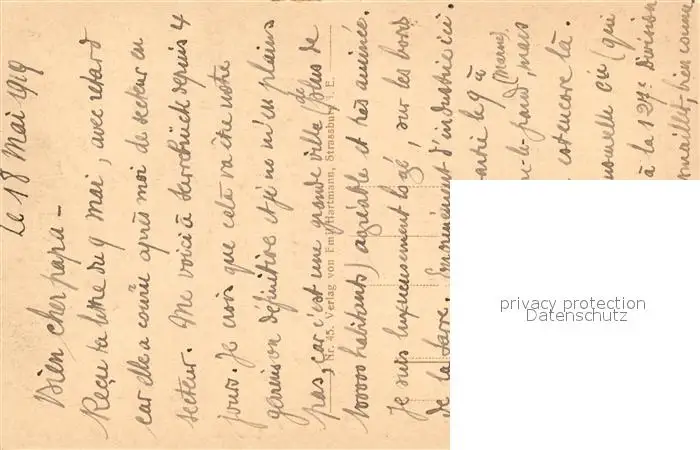 Le 18 Mai 1919
Bien cher papa -
Reçu ta lettre du 9 mai, avec retard
car elle a couru après moi de secteur en
secteur. Me voici à Sarrebrück depuis 4
jours. Je crois que cela va être notre
garnison définitive et je ne m'en plains
pas, car c'est une grande ville (plus de
100000 habitants) agréable et très animée.
Je suis luxueusement logé, sur les bords
de la Sarre. Enormément d'industrie ici.
partie le 9 à
(Marne), mais
est encore là.
(qui
à la 127e division
bien connu
Nr. 45. Verlag von Emil Hartmann, Strassburg i. E.
privacy protection
Datenschutz